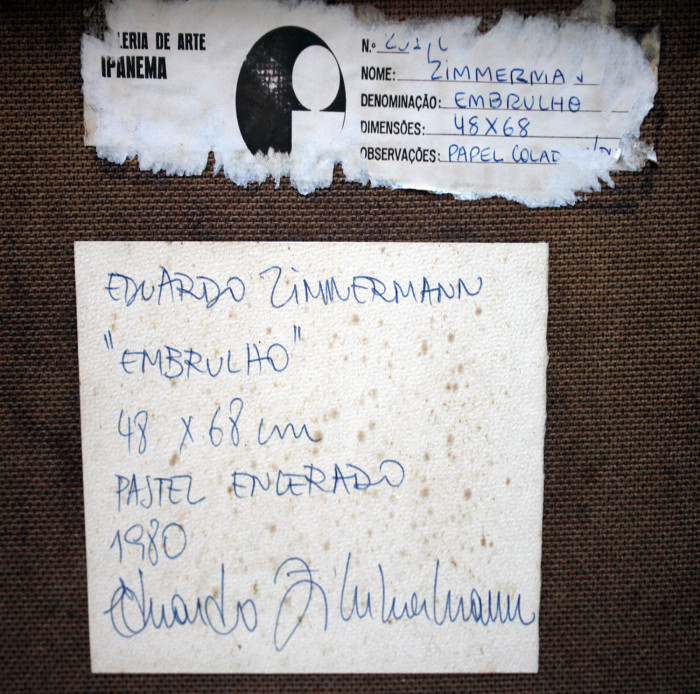 LERIA DE ARTE
IPANEMA
N.º
NOME: ZIMMERMA
DENOMINAÇÃO: EMBRULHO
DIMENSÕES: 48X68
OBSERVAÇÕES: PAPEL COLAD
EDUARDO ZIMMERMANN
"EMBRULHO"
48 X 68 cm
PASTEL ENCERADO
1980
Eduardo Zimmermann